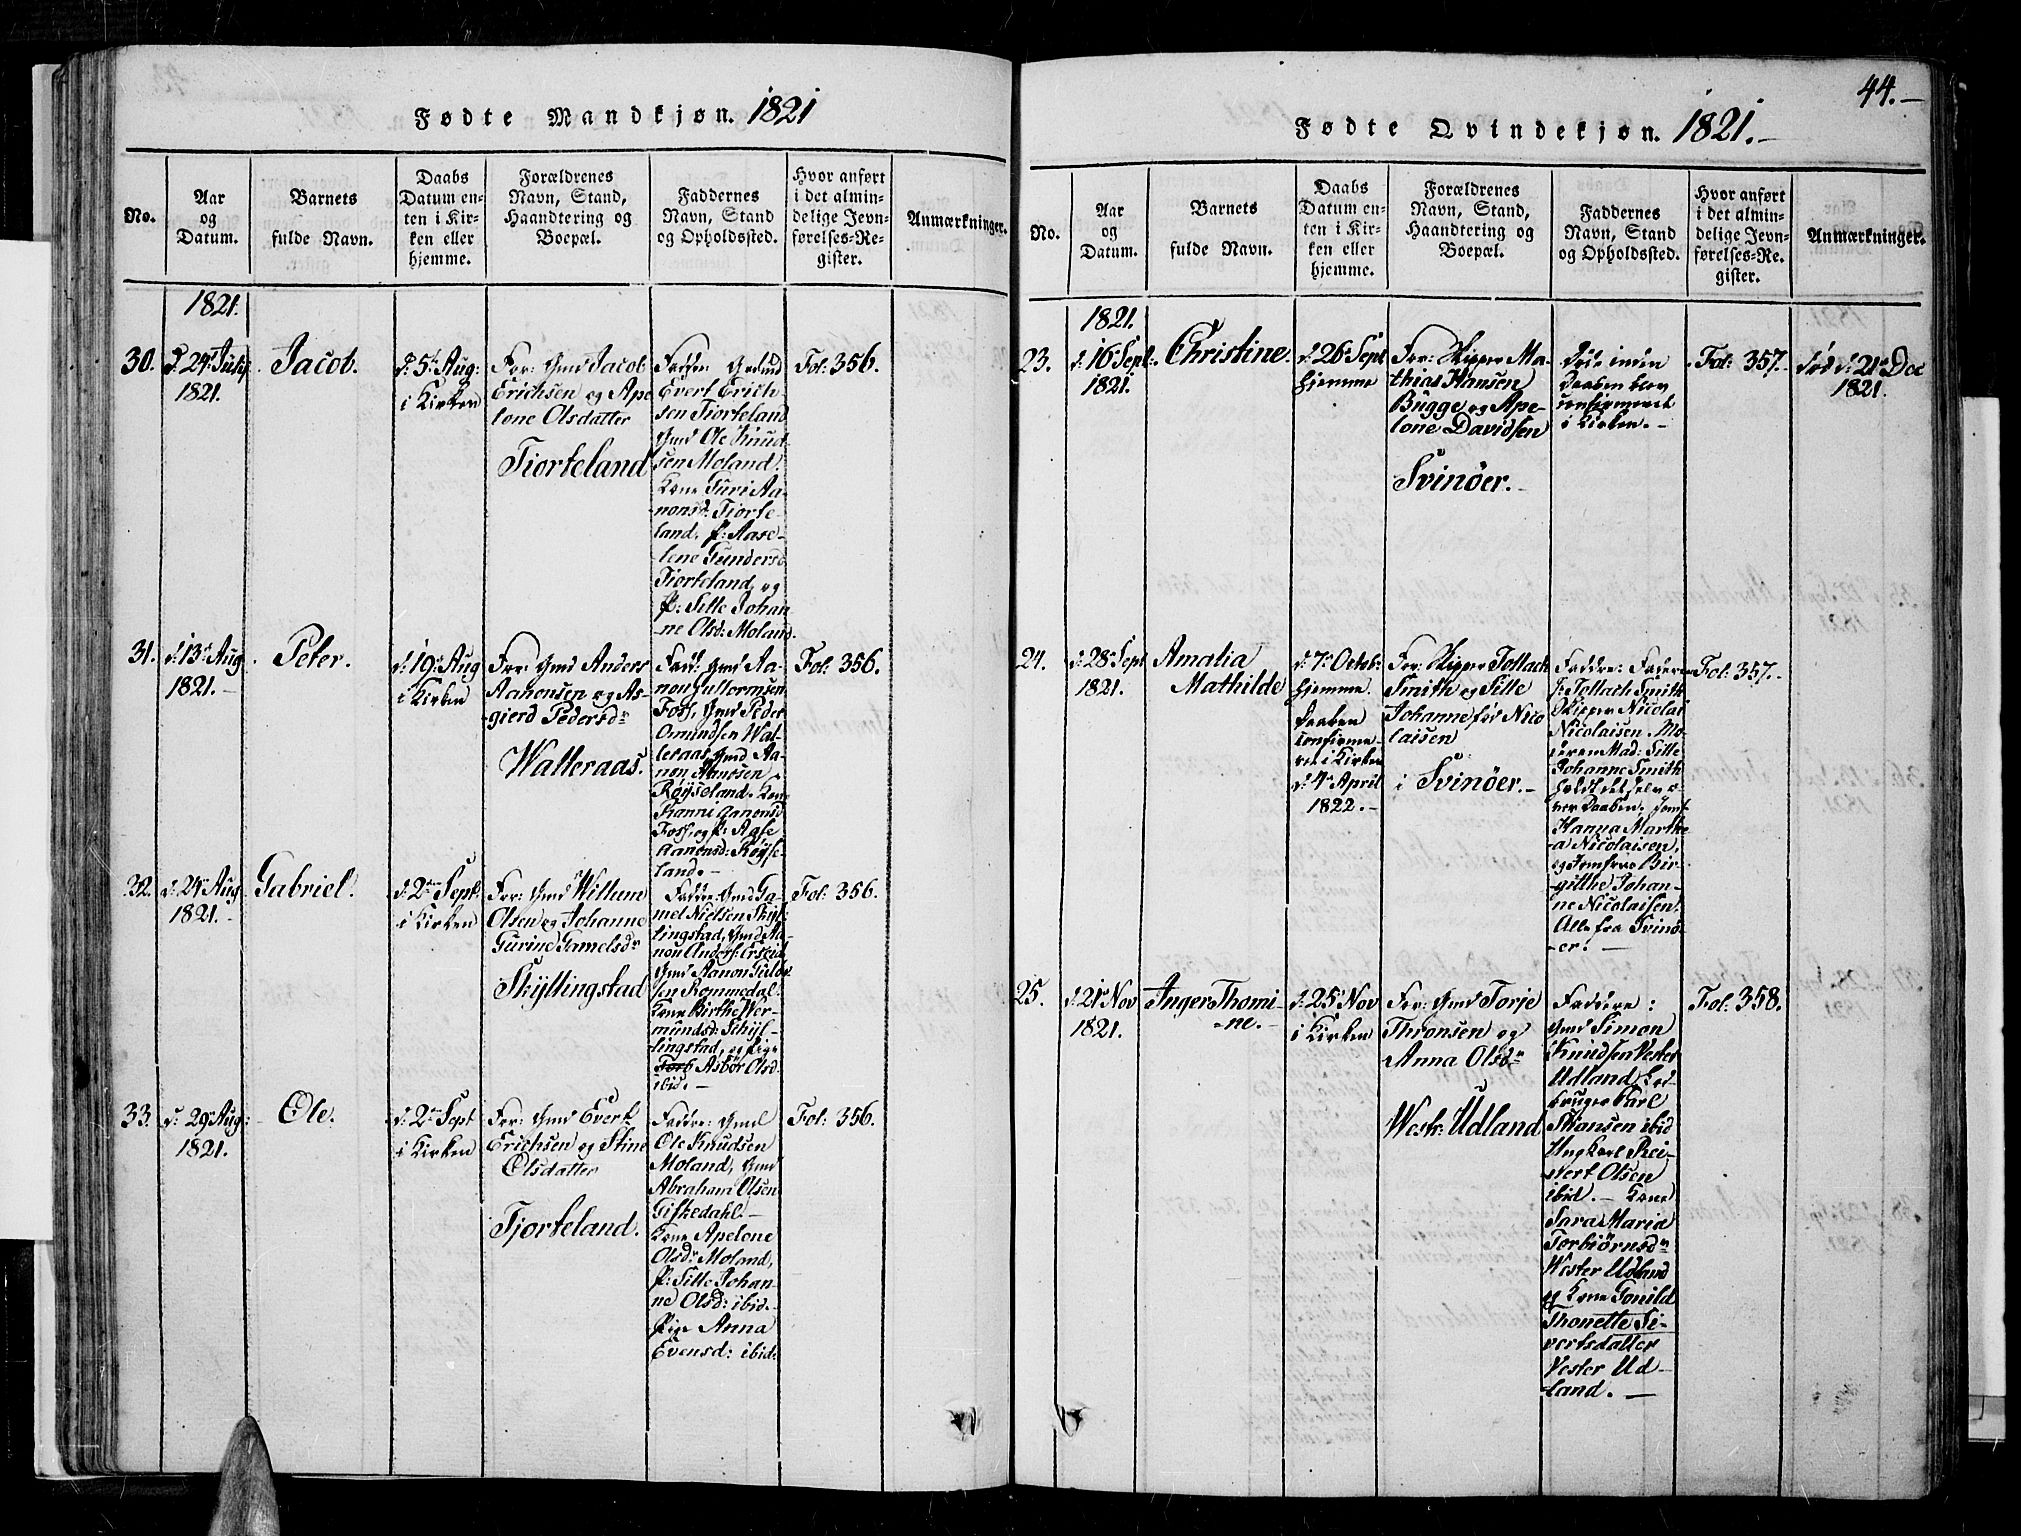 Fødte Mandkjøn. 1821
No.
Aar
og
Datum.
Barnets
fulde Navn.
Daabs
Datum en-
ten i Kir-
ken eller
hjemme.
Forældrenes
Navn, Stand,
Haandtering og
Boepæl.
Faddernes
Navn, Stand
og Opholdssted.
Hvor anført
i det almin-
delige Jevn-
førelses-Re-
gister.
Anmærkninger.
1821.
30.
d. 24 July
1821.
Jacob.
d: 5te Aug:
i Kirken
For: Gmd Jacob
Erichsen og Ape
lone Olsdatter
Tiorteland
Evert Erich-
sen Tiorteland
Gmd Ole Knud
sen Moland.
Kone Guri Aa-
nonsd: Tiorte-
land. P: Aase-
lene Gundersd
Tiorteland, og
P: Sille Johan
ne Olsd: Moland.
Fol: 356.
31.
d: 13 Aug
1821.-
Peter.
d: 19 Aug
i Kirken
For: Gmd Anders
Aanonsen og As-
gierd Pedersdr
Walleraas.
Fadd: Gmd Aa-
non Guttormsen
Foss, Gmd Peder
Omundsen Wal-
leraas, Gmd Aa-
non Hansen
Røyseland. Kone
Foss, og P: Aase
Aanonsd: Røyse-
land.-
Fol: 356.
32.
d: 24 Aug
1821.-
Gabriel.
d: 2den Sept.
i Kirken
For: Gmd Willum
Olsen og Johanne
Gurine Gamelsdr
Skyllingstad
Faddre: Gmd Ga-
mel Nielsen Skyl-
lingstad, Gmd Aa-
non Anders:
Gmd Aanon
sen Rommedal.
Kone Birthe Wer-
mundsd: Schyl-
lingstad, og Pige
Asbør Olsd
ibid.-
Fol: 356.
33.
d: 29 Aug:
1821.
Ole.
d: 2den Sept
i Kirken
For: Gmd Evert
Erichsen og Stine
Olsdatter
Tjorteland.
Faddre: Gmd
Ole Knudsen
Moland, Gmd
Abraham Olsen
Giskedahl.-
Kone Apelone
Olsdr Moland,
P: Sille Johan-
ne Olsd: ibid.-
Pige Anna
Evensd: ibid:
Fol: 356.
44.-
Fødte Qvindekjøn. 1821.-
No.
Aar
og
Datum.
Barnets
fulde Navn.
Daabs
Datum en-
ten i Kir-
ken eller
hjemme.
Forældrenes
Navn, Stand,
Haandtering og
Boepæl.
Faddernes
Navn, Stand
og Opholdssted.
Hvor anført
i det almin-
delige Jevn-
førelses-Re-
gister.
Anmærkninger.
1821.
23.
d: 16 Sept.
1821.
Christine.
d 26 Sept
hjemme
For: Skipper Ma-
thias Hansen
Bugge og Ape-
lone Davidsen
Svinöer.-
Døde inden
Daaben blev
confirmeret
i Kirken.-
Fol: 357.
Død d: 21 Dec
1821.
24.
d: 28 Sept
1821.
Amalia
Mathilde
d: 7 Octob:
hjemme.
Daaben
confirme-
ret i Kirken
d: 4 April
1822.-
For: Skipper Tollach
Smith og Sille
Johanne fød Nico
laisen
i Svinöer.-
Faddre: Faderen
S: Tollach Smith
Skipper Nicolai
Nicolaisen. Mo-
deren Mad: Sille
Johanne Smith
holdt det selv o-
ver Daaben. Jomf.
Hanna Marthe
a Nicolaisen,
og Jomfrue Bir-
githe Johan-
ne Nicolaisen.
Alle fra Svinø-
er.-
Fol: 357.
25.
d: 21 Nov
1821.
Anger Thomi-
ne.-
d: 25 Nov
i Kirken
For: Gmd Torje
Thronsen og
Anna Olsdr
Westr: Udland
Faddere:
Gmd Simon
Knudsen Vester
Udland, Led-
bruger Carl
Hansen ibid
Ungkarl Rei-
nert Olsen
ibid.- Kone
Sara Maria
Torbiørnsdr
Wester Udland
og Kone Gonild
Thonette Si-
vertsdatter
Vester Ud-
land.-
Fol: 358.